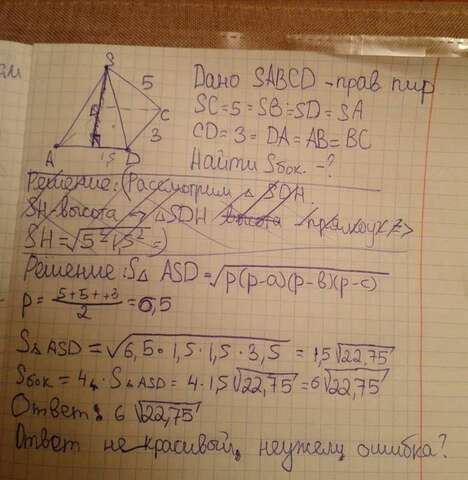 S
5
C
3
A
H
1,5
D
Дано SABCD - прав пир
SC = 5 = SB = SD = SA
CD = 3 = DA = AB = BC
Найти Sбок. - ?
Решение: (Рассмотрим △ SDH.
SH - высота => △SDH высота прямоуг =>
SH = √5² 1,5² =)
Решение: S△ ASD = √p(p-a)(p-в)(p-c)
p = (5+5++3)/2 = 6,5
S△ASD = √6,5 · 1,5 · 1,5 · 3,5 = 1,5 √22,75
Sбок = 4 · S△ASD = 4 · 1,5 √22,75 = 6 √22,75
Ответ: 6 √22,75
Ответ не красивый, неужели ошибка?